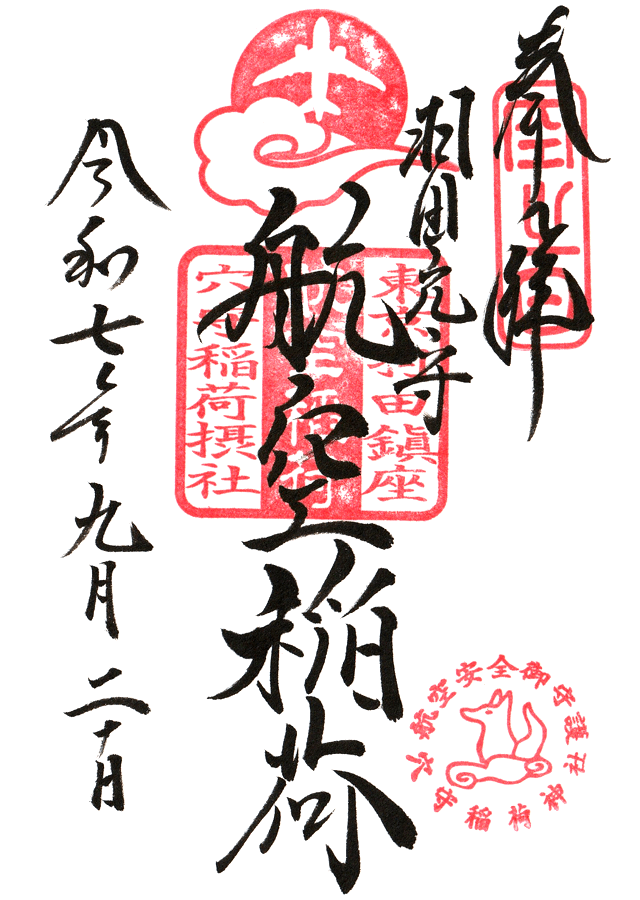 奉拝
羽田穴守
航空稲荷
令和七年九月二十日
東京羽田鎮座
航空稲荷
穴守稲荷摂社
航空安全御守護
穴守稲荷神社